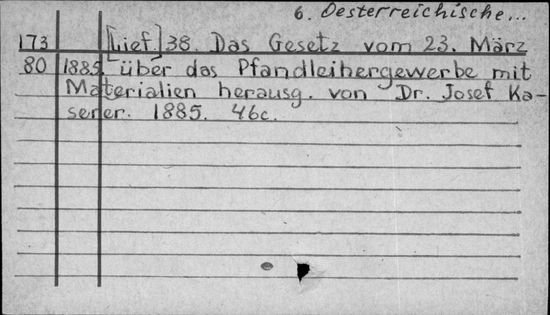 6. Oesterreichische...
173 [Lief.] 38. Das Gesetz vom 23. März
80 1885. über das Pfandleihergewerbe mit
Materialien herausg. von Dr. Josef Ka-
serer. 1885. 46c.